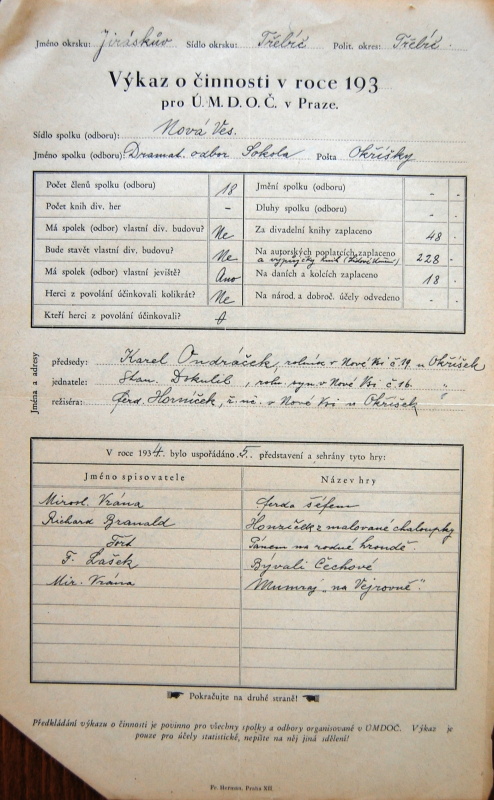 Jméno okrsku: Jiráskův Sídlo okrsku: Třebíč Polit. okres: Třebíč.
Výkaz o činnosti v roce 193
pro Ú.M.D.O.Č. v Praze.
Sídlo spolku (odboru): Nová Ves.
Jméno spolku (odboru): Dramat. odbor Sokola Pošta Okříšky
Počet členů spolku (odboru) 18 Jmění spolku (odboru) - -
Počet knih div. her - Dluhy spolku (odboru) - -
Má spolek (odbor) vlastní div. budovu? Ne Za divadelní knihy zaplaceno 48 -
Bude stavět vlastní div. budovu? Ne Na autorských poplatcích zaplaceno 228 -
a výpůjčky knih
Má spolek (odbor) vlastní jeviště? Ano Na daních a kolcích zaplaceno 18 -
Herci z povolání účinkovali kolikrát? Ne Na národ. a dobroč. účely odvedeno - -
Kteří herci z povolání účinkovali?
Jména a adresy
předsedy: Karel Ondráček, rolník v Nové Vsi č 19. u Okříšek
jednatele: Stan. Dokulil, roln. syn v Nové Vsi č 16. "
režiséra: Ferd. Horníček, v Nové Vsi u Okříšek
V roce 1934. bylo uspořádáno 5. představení a sehrány tyto hry:
Jméno spisovatele Název hry
Mirosl. Vrána Ferda šéfem
Richard Branald Honzíček z malované chaloupky
Fořt Pánem na rodné hroudě.
F. Lašek Bývalí Čechové
Mir. Vrána Mumraj "na Vejrovně".
Pokračujte na druhé straně!
Předkládání výkazu o činnosti je povinno pro všechny spolky a odbory organisované v ÚMDOČ. Výkaz je
pouze pro účely statistické, nepište na něj jiná sdělení!
Fr. Hermann, Praha XII.